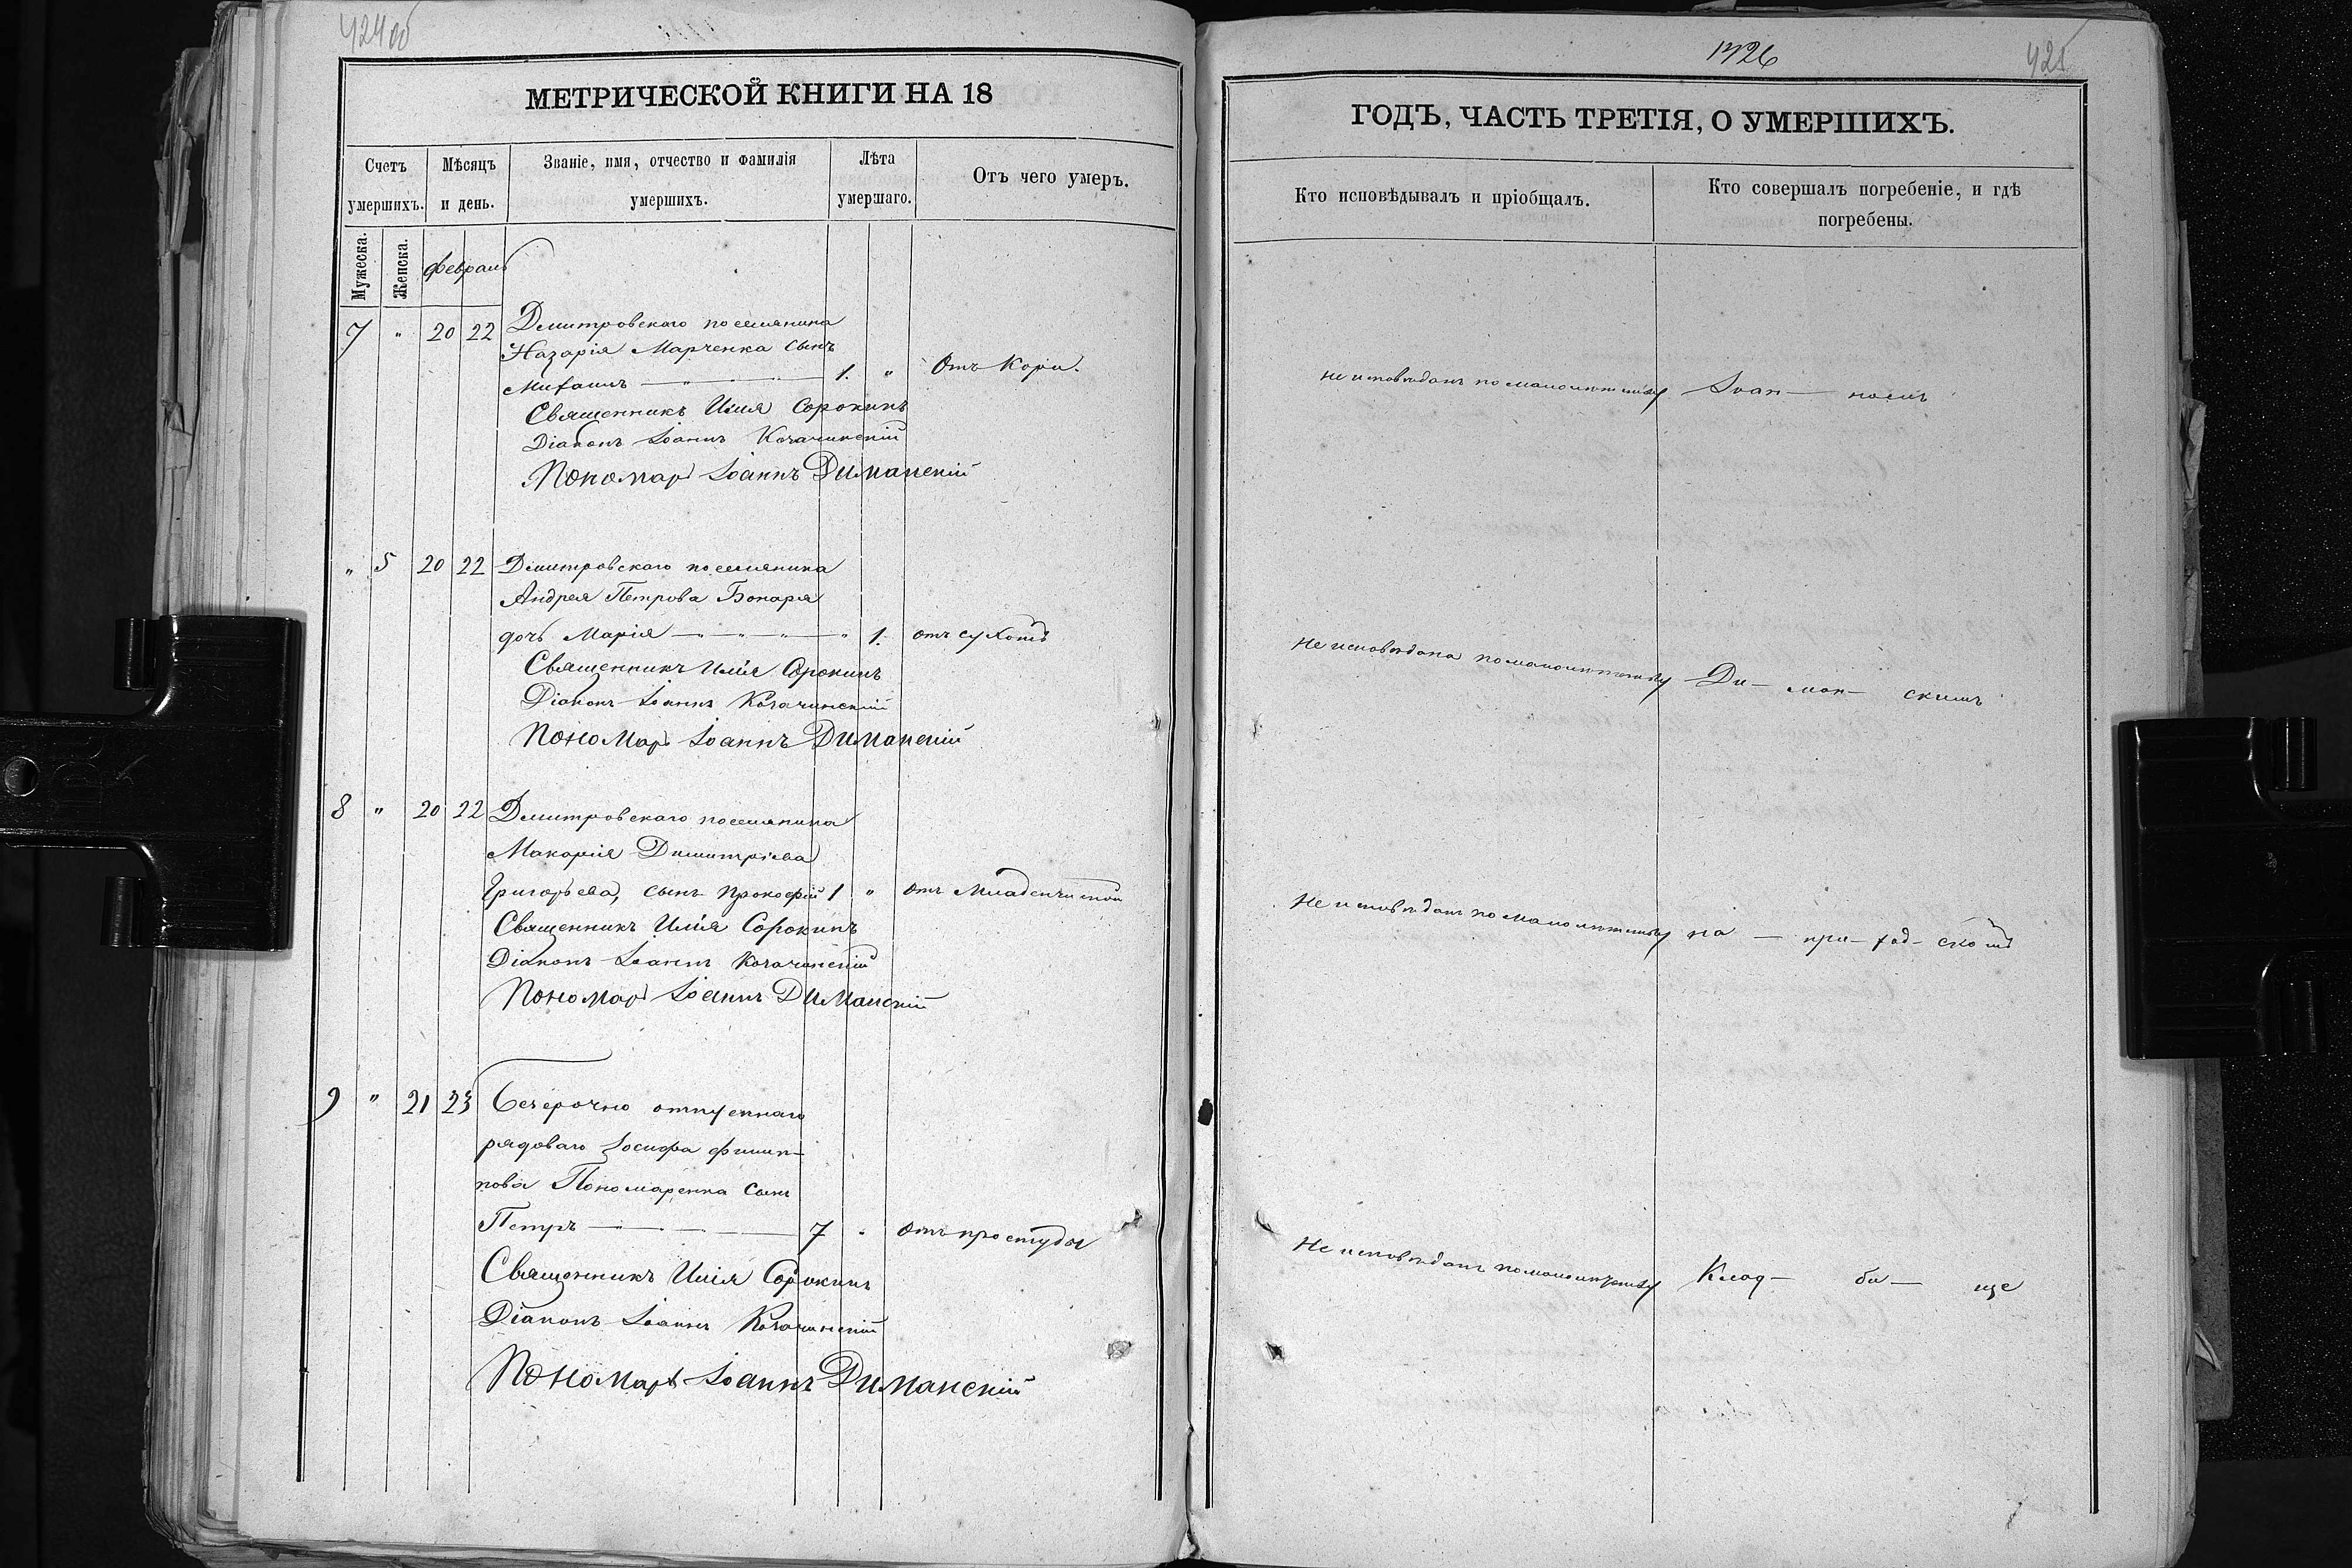 424об
МЕТРИЧЕСКОЙ КНИГИ НА 18
Счетъ умершихъ.
Мѣсяцъ и день.
Званіе, имя, отчество и фамилія умершихъ.
Лѣта умершаго.
Отъ чего умеръ.
Мужеска.
Женска.
февраль
7 " 20 22 Дмитровскаго поселянина
Назарія Марченка сынъ
Михаилъ 1. " Отъ Кори.
Священникъ Илія Сорокинъ
Діаконъ Іоаннъ
Пономарь Іоаннъ Диманскій
" 5 20 22 Дмитровскаго поселянина
Андрея Петрова Бокаря
дочь Марія " 1. отъ сухотъ
Священникъ Илія Сорокинъ
Діаконъ Іоаннъ
Пономарь Іоаннъ Диманскій
8 " 20 22 Дмитровскаго поселянина
Макарія Димитріева
Григорьева, сынъ Прокофій 1 " отъ Младенчиской
Священникъ Илія Сорокинъ
Діаконъ Іоаннъ
Пономарь Іоаннъ Диманскій
9 " 21 23 Безсрочно отпускнаго
рядоваго Іосифа филип-
пова Пономаренка сынъ
Петръ 7 " отъ простуды
Священникъ Илія Сорокинъ
Діаконъ Іоаннъ
Пономарь Іоаннъ Диманскій
1326
425
ГОДЪ, ЧАСТЬ ТРЕТІЯ, О УМЕРШИХЪ.
Кто исповѣдывалъ и пріобщалъ.
Кто совершалъ погребеніе, и гдѣ погребены.
не исповѣданъ по малолѣтству Іоан— номъ
Не исповѣдана по малолѣтству Ди— ман— скимъ
Не исповѣданъ по малолѣтству на — при— ход— скомъ
Не исповѣданъ по малолѣтству Клад— би— ще